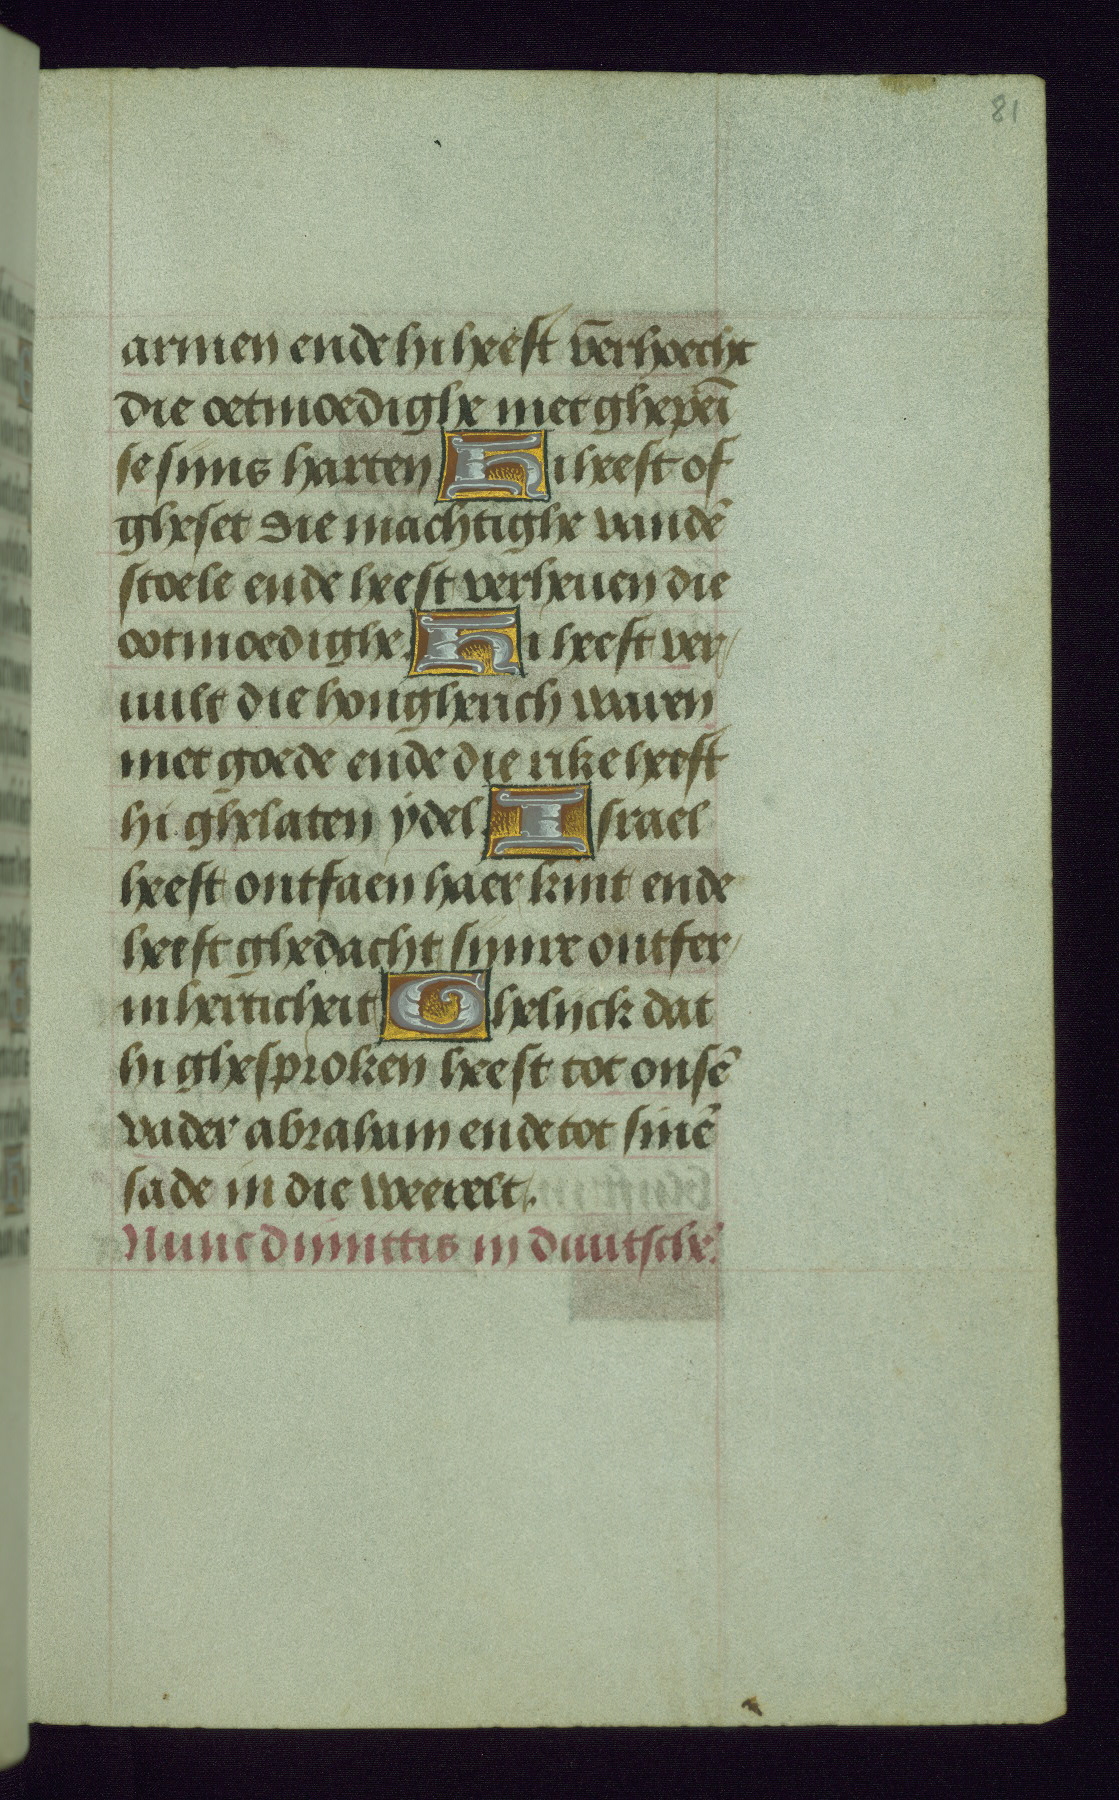 81
armen ende hi heeft v̄erhoecht
die oetmoedighe met ghepeī
se sijns harten Hi heeft of
gheset die machtighe vandē
stoele ende heeft verheuen die
ootmoedighe. Hi heeft ver/
uult die hongherich waren
met goede ende die rike heeft
hi ghelaten ydel. Israel
heeft ontfaen haer kint ende
heeft ghedacht sijnre ontfer/
mherticheit Ghelijck dat
hi ghesproken heeft tot onsē
vader abraham ende tot sinē
sade in die weerelt.
Nunc dimittis in duutsche.